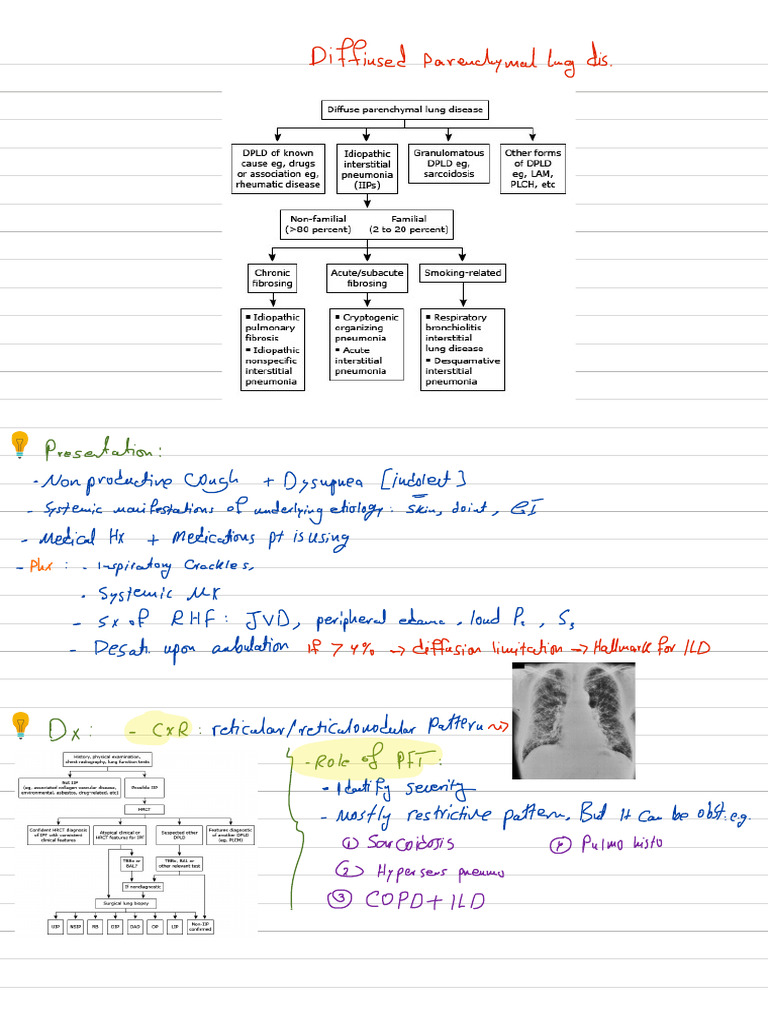 Diffused parenchymal lung dis.
Diffuse parenchymal lung disease
DPLD of known
cause eg, drugs
or association eg,
rheumatic disease
Idiopathic
interstitial
pneumonia
(IIPs)
Granulomatous
DPLD eg,
sarcoidosis
Other forms
of DPLD
eg, LAM,
PLCH, etc
Non-familial
(>80 percent)
Familial
(2 to 20 percent)
Chronic
fibrosing
Acute/subacute
fibrosing
Smoking-related
▪ Idiopathic
pulmonary
fibrosis
▪ Idiopathic
nonspecific
interstitial
pneumonia
▪ Cryptogenic
organizing
pneumonia
▪ Acute
interstitial
pneumonia
▪ Respiratory
bronchiolitis
interstitial
lung disease
▪ Desquamative
interstitial
pneumonia
Presentation:
- Non productive Cough + Dyspnea [indolent]
- Systemic manifestations of underlying etiology: Skin, Joint, GI
- Medical Hx + Medications pt is using
- Phx : - Inspiratory Crackles,
- Systemic MX
- Sx of RHF: JVD, peripheral edema, loud P2, S3
- Desat. upon ambulation if > 4% → diffusion limitation → Hallmark for ILD
Dx: - CXR: reticular/reticulonodular pattern →
History, physical examination,
chest radiography, lung function tests
Not IIP
(eg, associated collagen vascular disease,
environmental, asbestos, drug-related, etc)
Possible IIP
HRCT
Confident HRCT diagnosis
of IPF with consistent
clinical features
Atypical clinical or
HRCT features for IPF
Suspected other
DPLD
Features diagnostic
of another DPLD
(eg, PLCH)
TBBx or
BAL?
TBBx, BAL or
other relevant test
If nondiagnostic
Surgical lung biopsy
UIP
NSIP
RB
DIP
DAD
OP
LIP
Non-IIP
confirmed
- Role of PFT:
- Identify severity
- Mostly restrictive pattern, But it can be obst: e.g.
① Sarcoidosis
④ Pulmo histo
② Hypersens pneumo
③ COPD + ILD